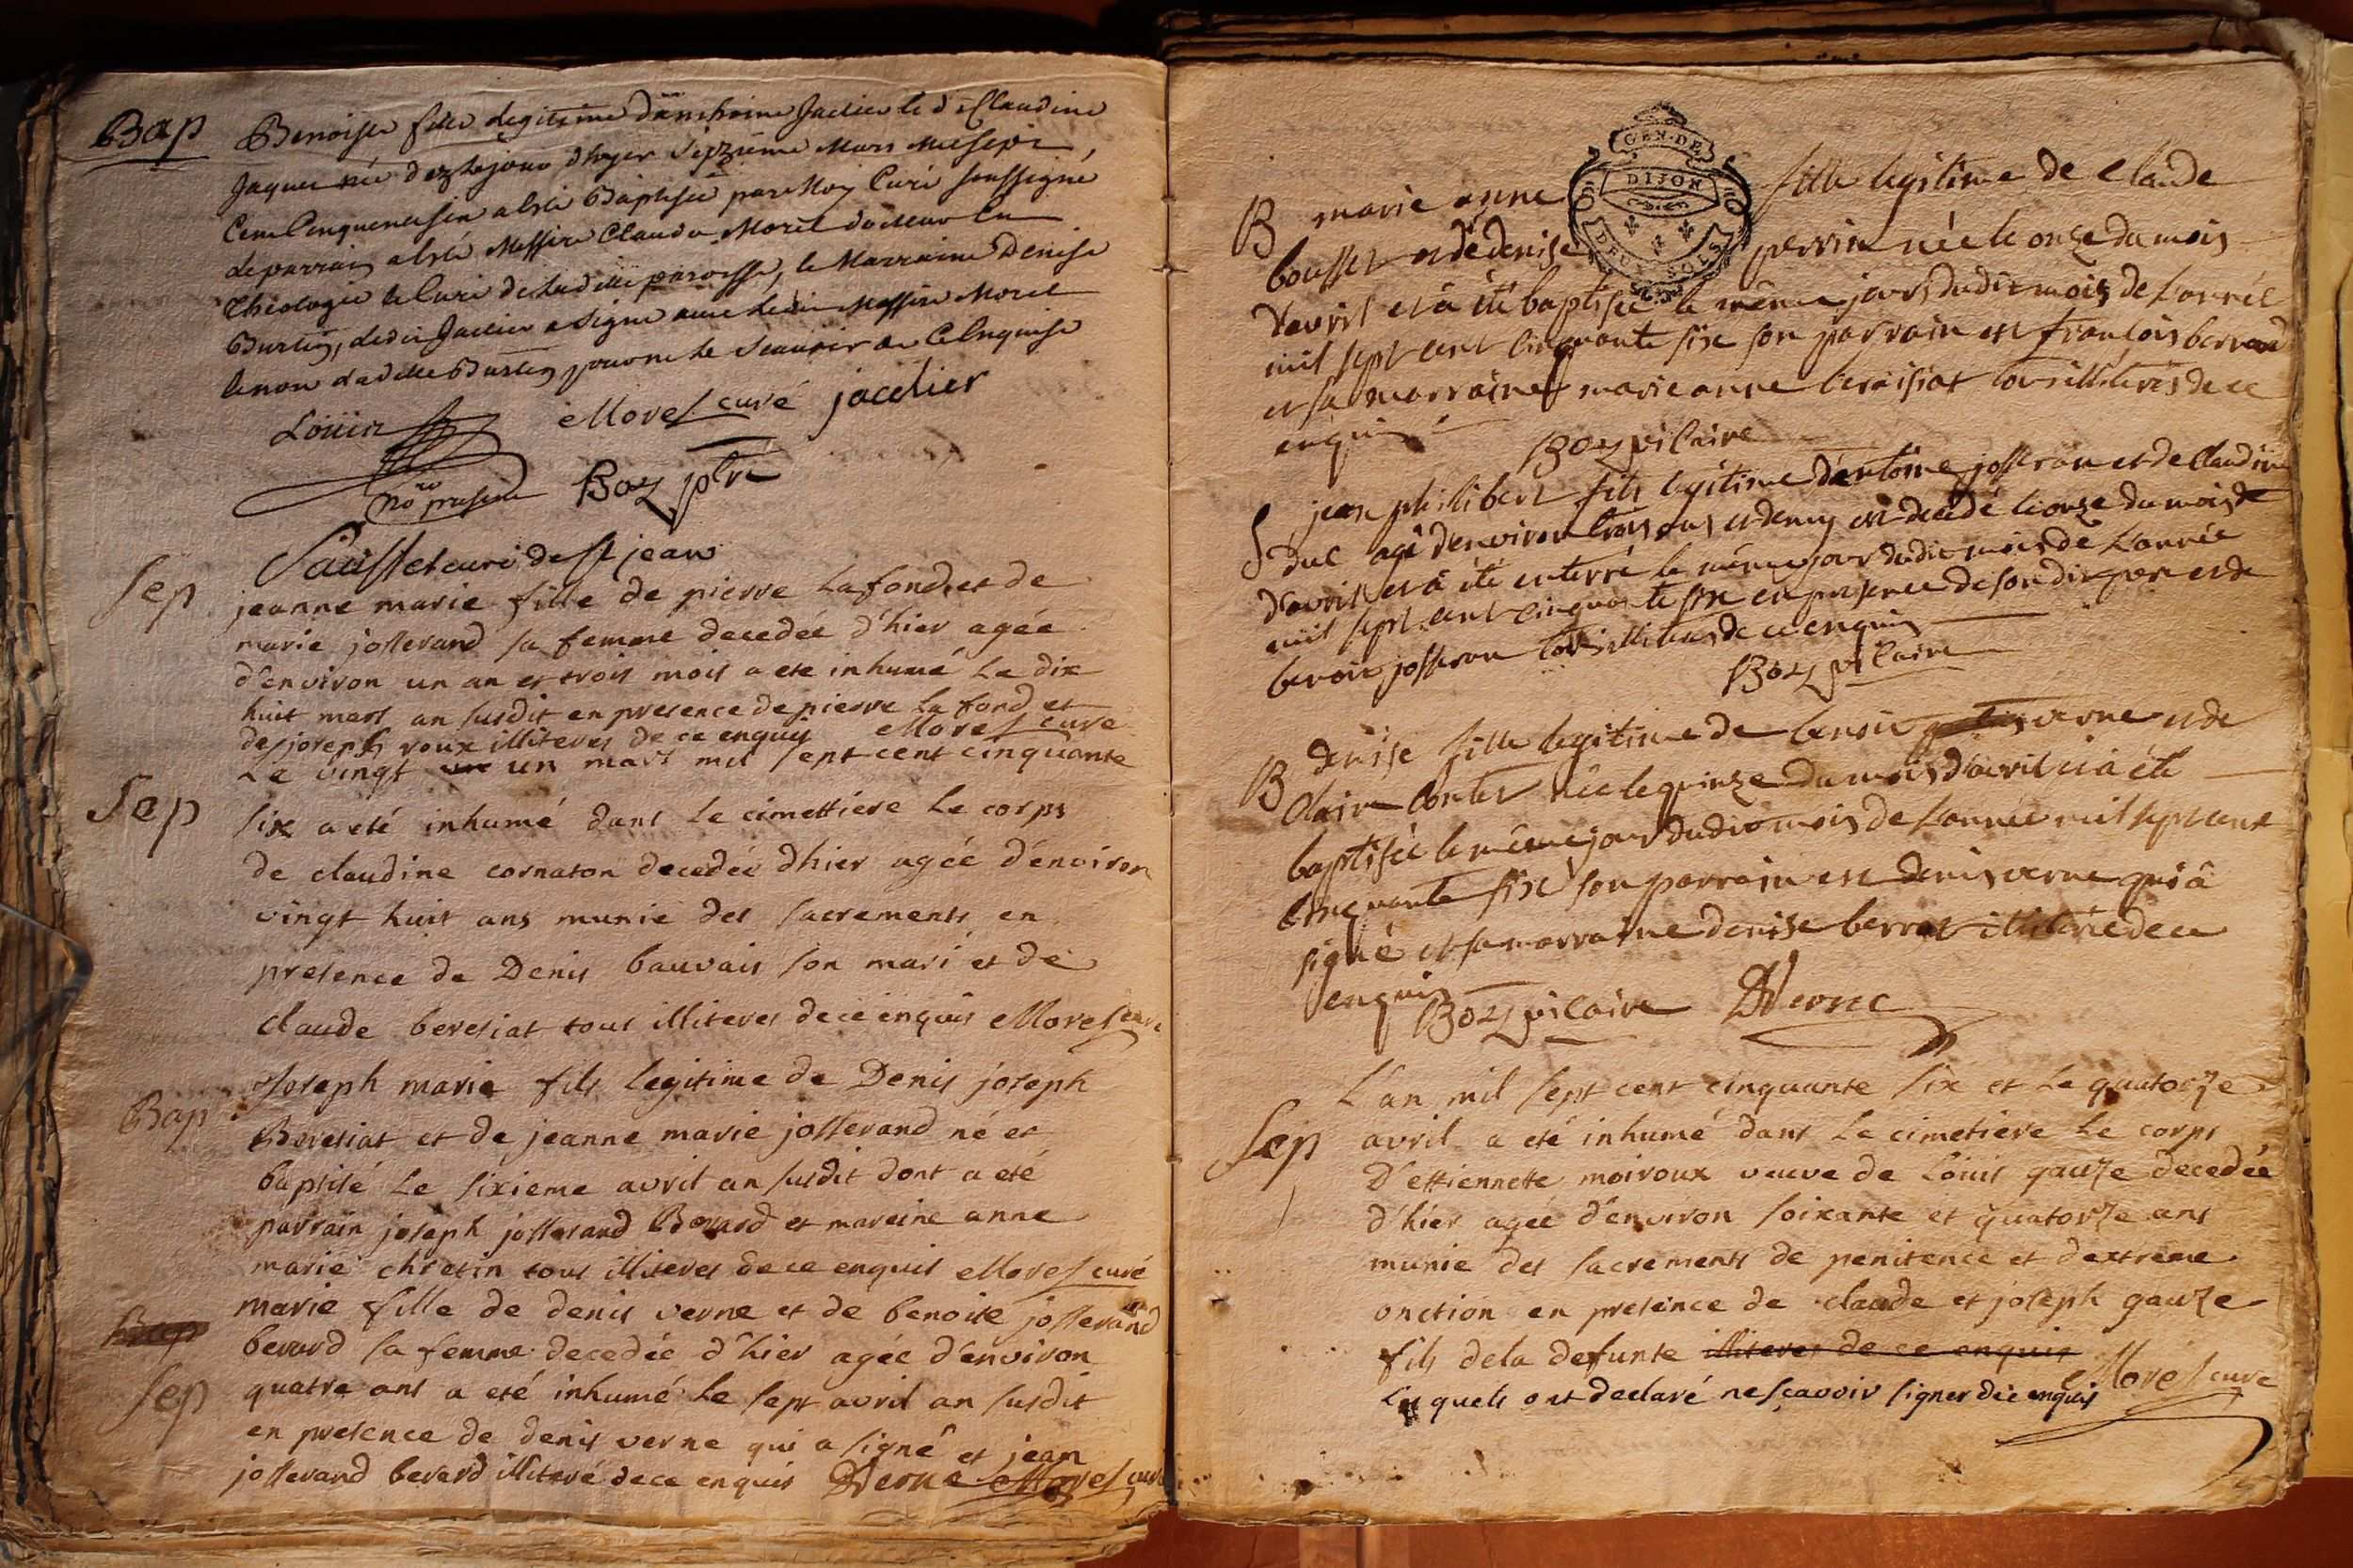 Bap
Benoiste fille legitime d'anthoine Jacelier & de Claudine
Jaquet née dez le jour d'hyer seizieme Mars mil sept
Cent Cinquante six a esté Baptisée par Moy Curé soussigné
le parrain a esté Messire Claude Morel docteur en
Theologie & Curé de la ditte paroisse, la Marraine Denise
Burtin, ledit Jacelier a signé avec ledit Messire Morel
& non la ditte Burtin pour ne le scavoir de ce Enquise
Morel curé jacelier
Boz ptre
curé de St jean
Sep
jeanne marie fille de pierre Lafond et de
marie josserand sa femme decedée d'hier agée
d'environ un an et trois mois a eté inhumé Le dix
huit mars an susdit en presence de pierre La fond et
de joseph roux illiteres de ce enquis Morel curé
Sep
Le vingt un mars mil sept cent cinquante
six a eté inhumé dans Le cimettiere Le corps
de claudine cornaton decedée d'hier agée d'environ
vingt huit ans munie des sacrements en
presence de Denis bauvais son mari et de
claude beresiat tous illiteres de ce enquis Morel curé
Bap
Joseph marie fils legitime de Denis joseph
Beresiat et de jeanne marie josserand né et
baptisé Le sixieme avril an susdit dont a eté
parrain joseph josserand Berard et mareine anne
marie chretin tous illiteres de ce enquis Morel curé
Bap
Sep
marie fille de denis verne et de benoite josserand
berard sa femme decedée d'hier agée d'environ
quatre ans a eté inhumé Le sept avril an susdit
en presence de denis verne qui a signé et jean
josserand berard illiteré de ce enquis DVerne Morel curé
GEN. DE
DIJON
DEUX SOLS
B marie anne fille legitime de Claude
bousset et de denise perrin née le onze du mois
d'avril et à été baptisée le même jour dudit mois de L'année
mil sept cent cinquante six son parrain est françois berrard
et sa marraine marie anne beraisiat tous illiterés de ce
enquis
Boz vicaire
S jean philibert fils legitime d'antoine josseran et de claudine
duc agé d'environ trois ans et demy est decedé le onze du mois de
d'avril et à été enterré le même jour dudit mois de L'année
mil sept cent cinquante six en presence de son dit pere et de
benoit josseran tous illiteres de ce enquis
Boz vicaire
B denise fille legitime de benoit verne et de
Claire née le quinze du mois d'avril et à été
baptisée le même jour dudit mois de L'année mil sept cent
cinquante six son parrain est denis verne qui à
signé et sa marraine denise berrat illiterée de ce
enquis
Boz vicaire DVerne
L'an mil sept cent cinquante six et Le quatorze
Sep
avril a eté inhumé dans Le cimetiere Le corps
D'ettiennette moiroux veuve de Louis gauze decedée
d'hier agée d'environ soixante et quatorze ans
munie des sacrements de penitence et d'extreme
onction en presence de claude et joseph gauze
fils de la defunte illiteres de ce enquis
Lesquels ont declaré ne sçavoir signer de ce enquis Morel curé